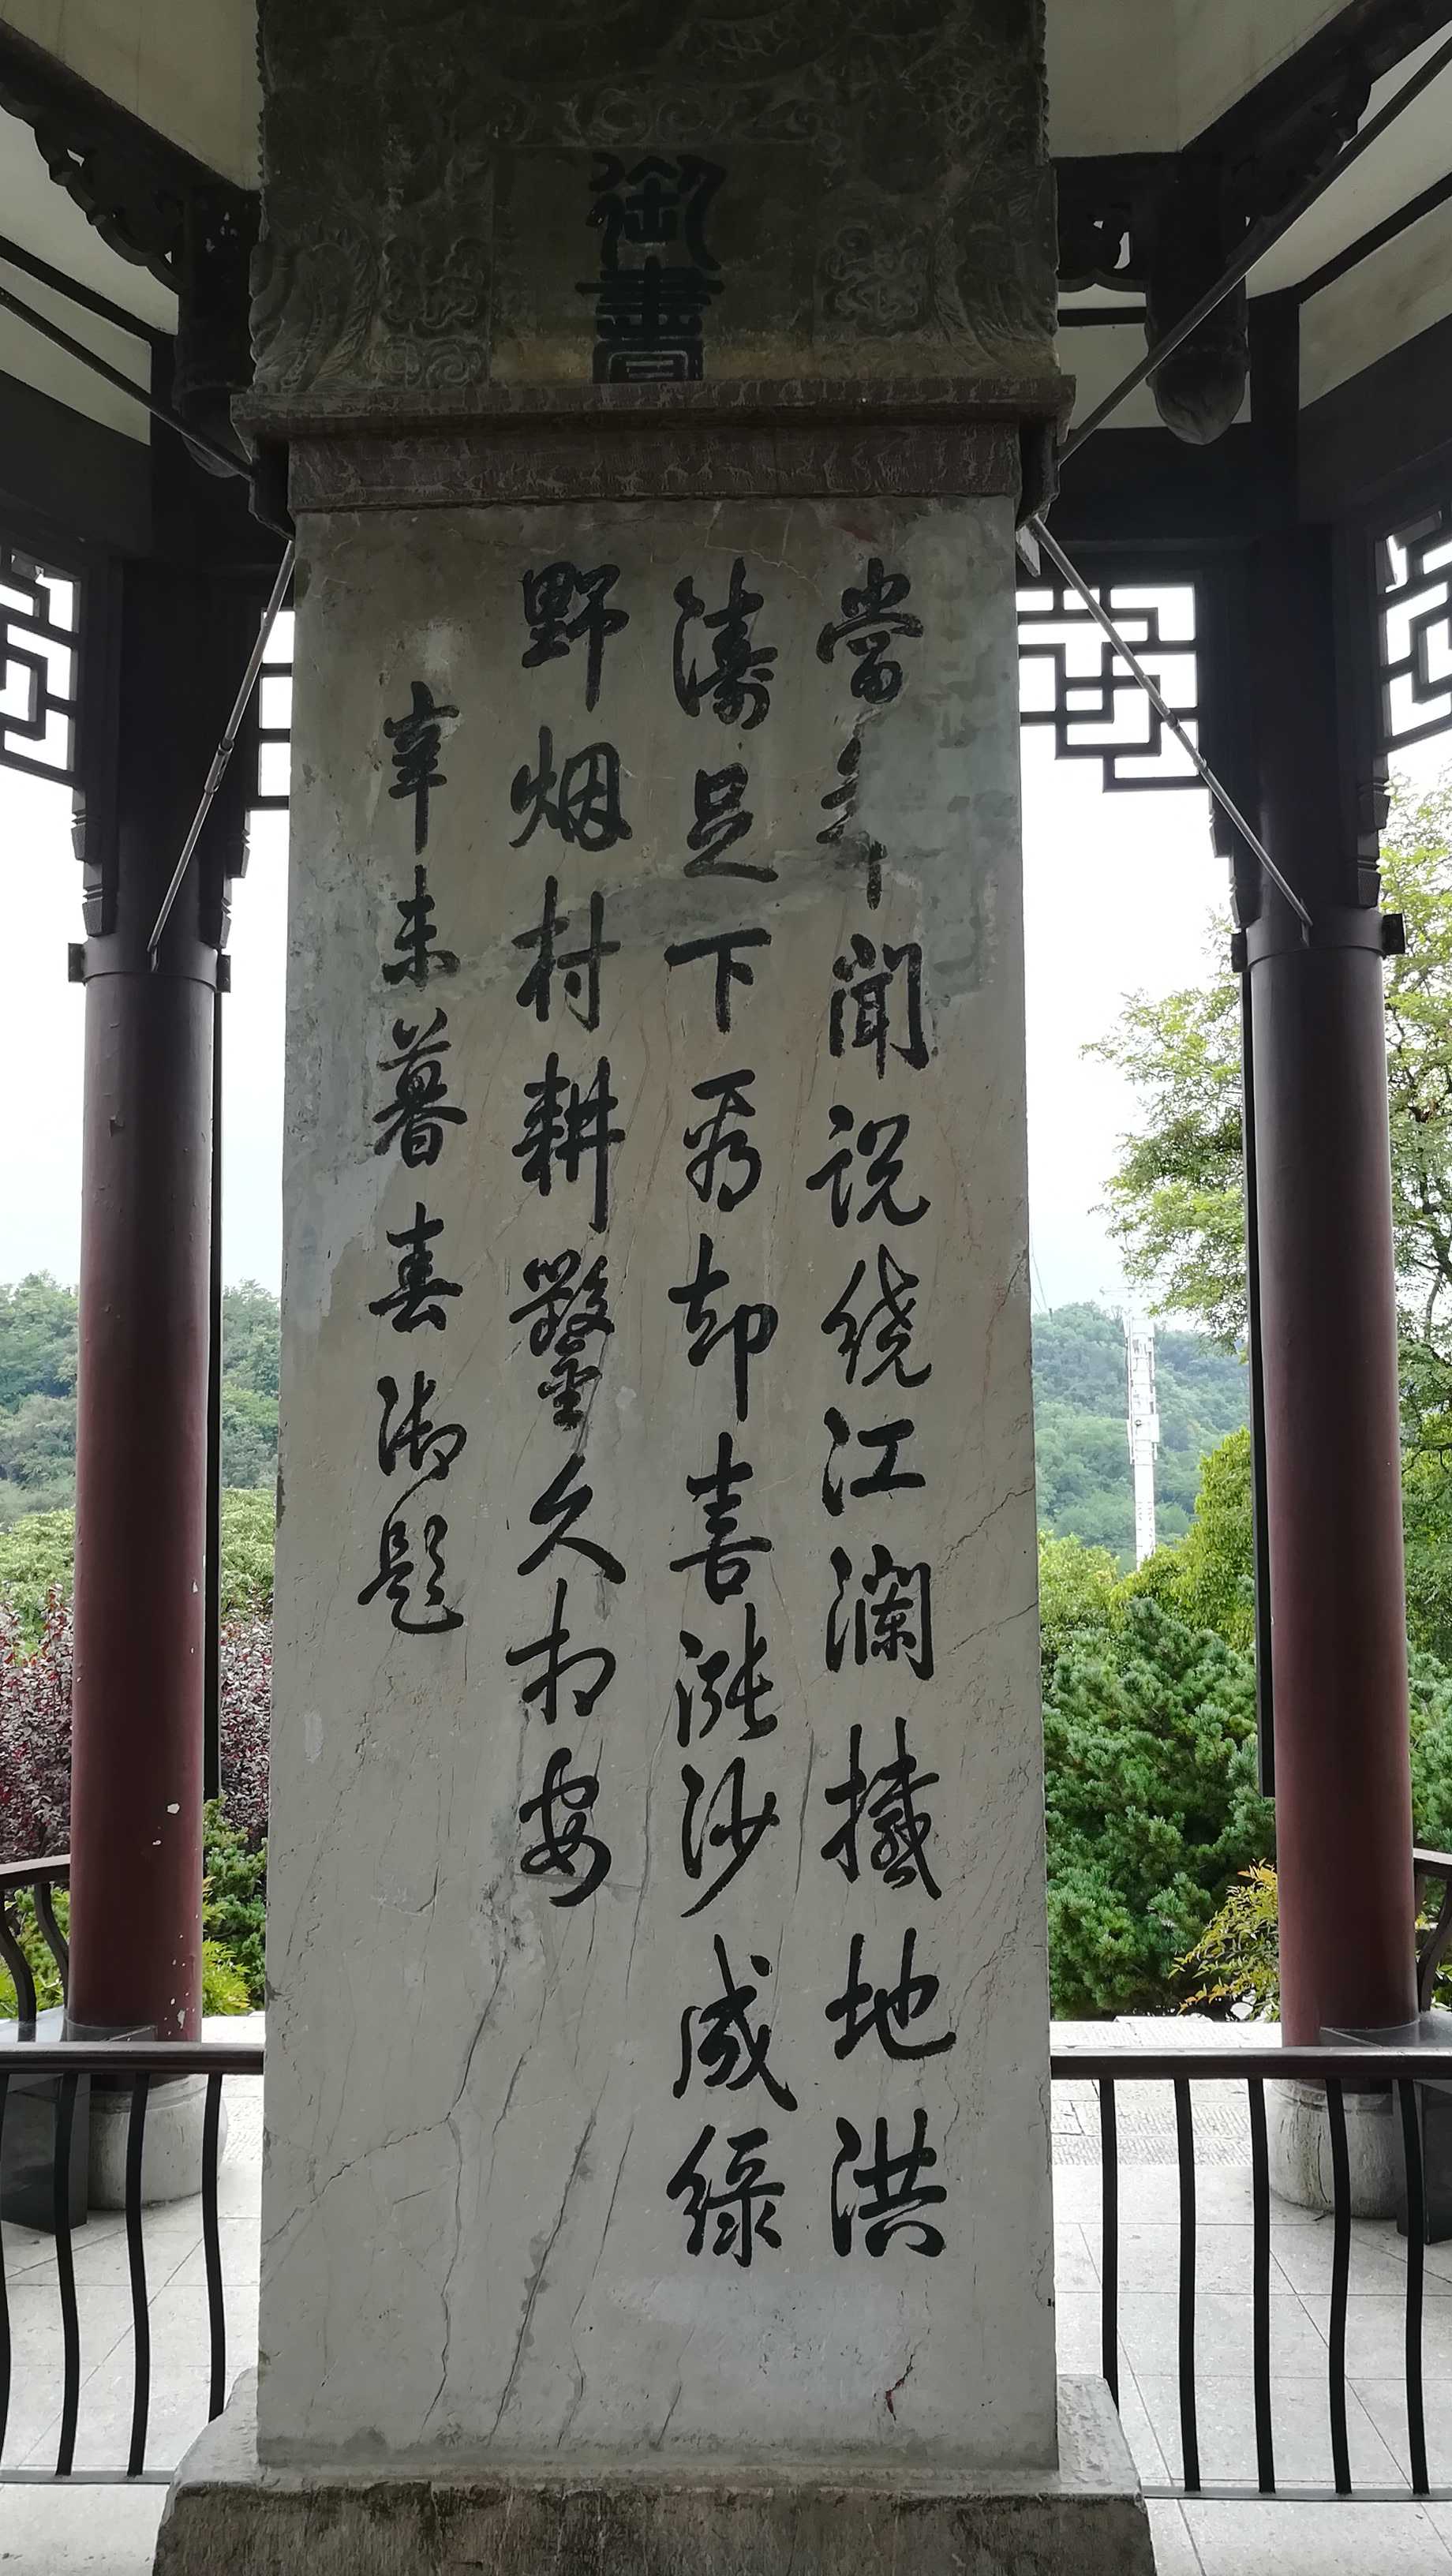 御書
當年聞說繞江瀾撼地洪
濤足下看却喜漲沙成綠
野烟村耕鑿久相安
辛未暮春御題